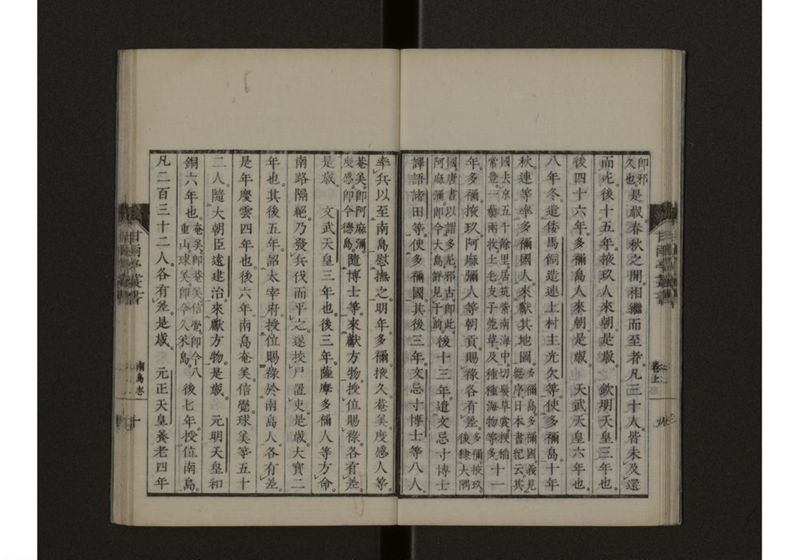 即邪久也是歲春秋之間相繼而至者凡三十人皆未及還
而死後十五年掖玖人來是歲 欽明天皇三年也
後四十六年多禰島人來朝是歲 天武天皇六年也
八年冬遣倭馬飼造連上村主光欠等使多禰島十年
秋連等率多禰國人來獻其地圖多禰島多禰國義見總序日本書紀云其
國去京五千餘里居筑紫南海中切髮草裳粳稻常豊一蓺兩收土毛支子莞草及種種海物等多十一
年多禰掖玖阿麻彌人等朝貢賜祿各有差多禰掖玖後隸大隅
國唐書以謂多尼邪古即此阿麻彌即今大島詳見于前後十三年遣文忌寸博士
譯語諸田等使多禰國其後三年文忌寸博士等八人
率兵以至南島慰撫之明年多禰掖久菴美度感人等
菴美即阿麻彌度感即今德島隨博士等來獻方物授位賜祿各有差
是歲 文武天皇三年也後三年薩摩多禰人等方命
南路隔絕乃發兵伐而平之遂挍戶置吏是歲大寶二
年也其後五年詔太宰府授位賜祿於南島人各有差
是年慶雲四年也後六年南島奄美信覺球美等五十
二人隨大朝臣遠建治來獻方物是歲 元明天皇和
銅六年也奄美即菴美信覺即今八重山球美即今久米島後七年授位南島
凡二百三十二人各有差是歲 元正天皇養老四年
甘雨亭叢書
南島志
十